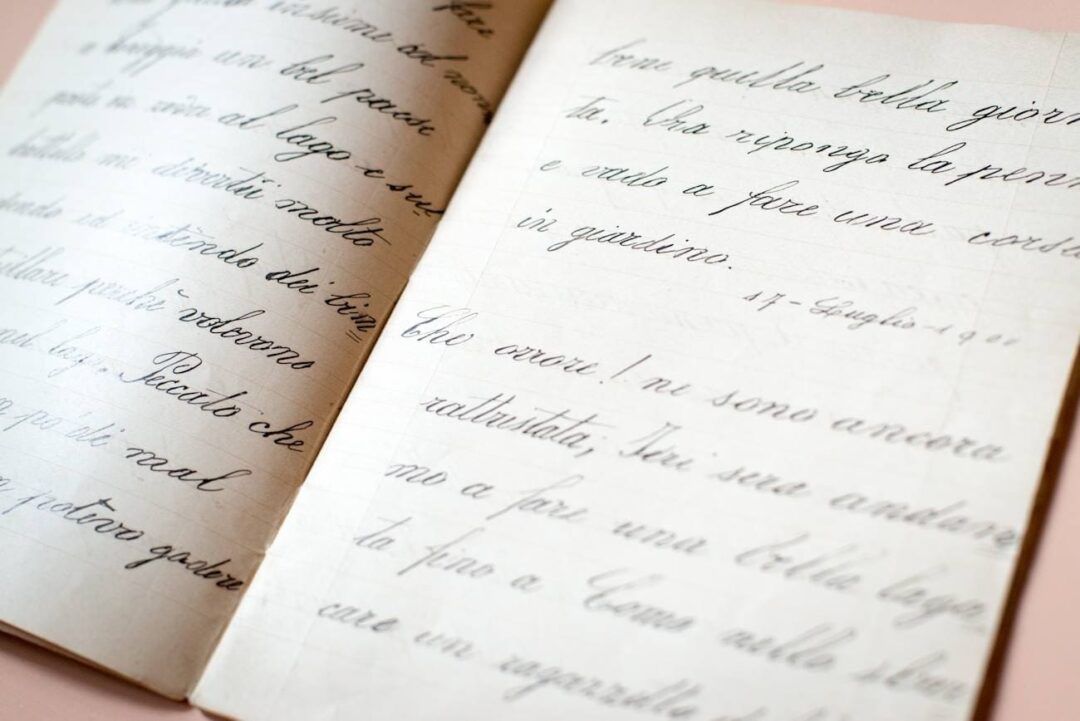 fare
insieme col nonno
a Laggio un bel paese
al lago e sul
battello mi divertii molto
ed ridendo dei bim
perchè volovono
nel lago. Peccato che
un pò di mal
potevo godere
bene quella bella giorn
ta. Ora ripongo la penn
e vado a fare una corsa
in giardino.
17-Luglio-19
Che orrore! ne sono ancora
rattristata; Ieri sera andam
mo a fare una bella
ta fino a Como nello
care un ragazzetto